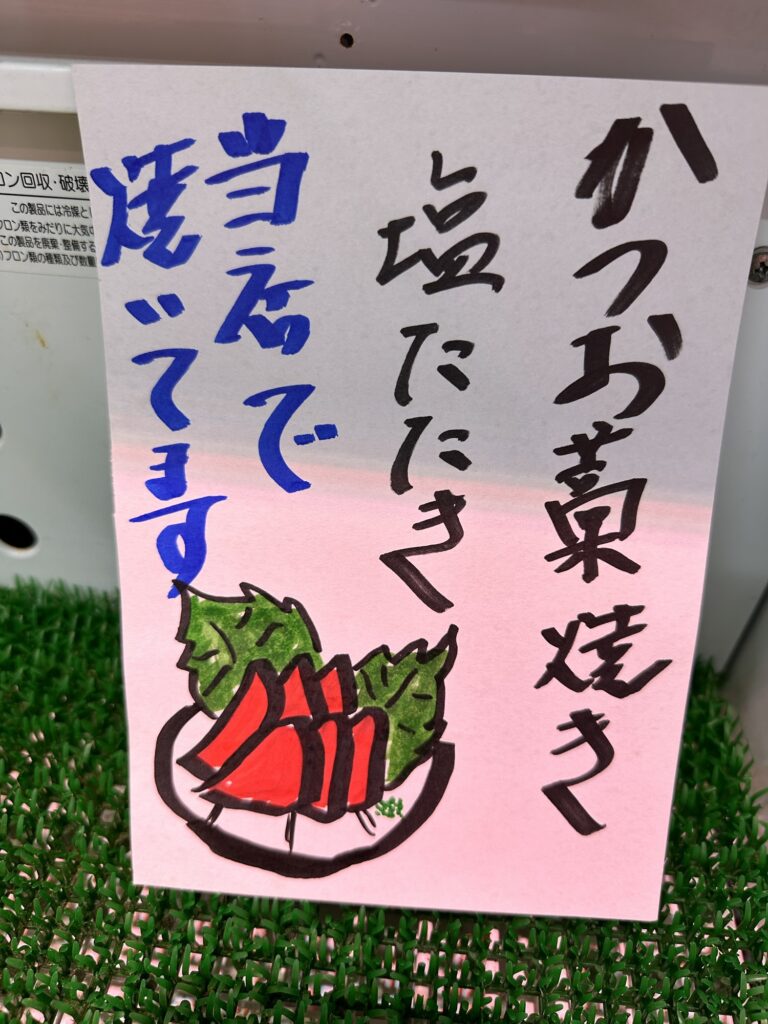 かつお藁焼き
塩たたき
当店で
焼いてます
ロン回収・破壊
この製品には冷媒とし
フロン類をみだりに大気中
この製品を廃棄・整備する
フロン類の種類及び数量